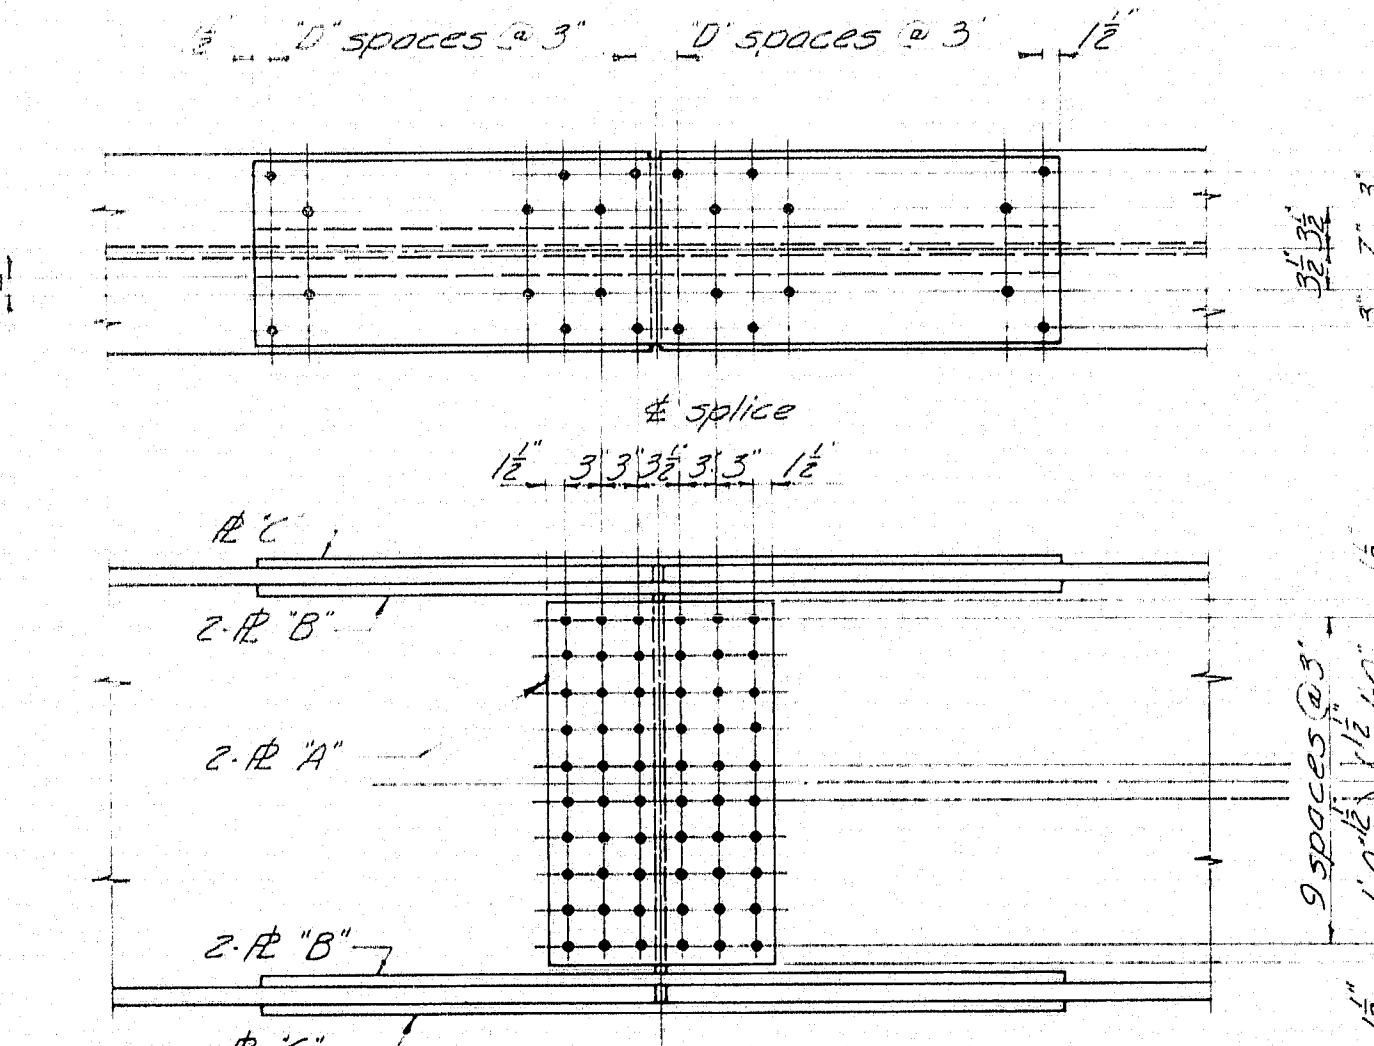 "D" spaces @ 3" "D" spaces @ 3" 1½"
3½" 3½"
3" 7" 3"
℄ splice
1½" 3" 3" 3½" 3" 3" 1½"
PL "C"
2-PL "B"
9 spaces @ 3"
2-PL "A"
1½" 1½"
2-PL "B"
1½"
PL "C"